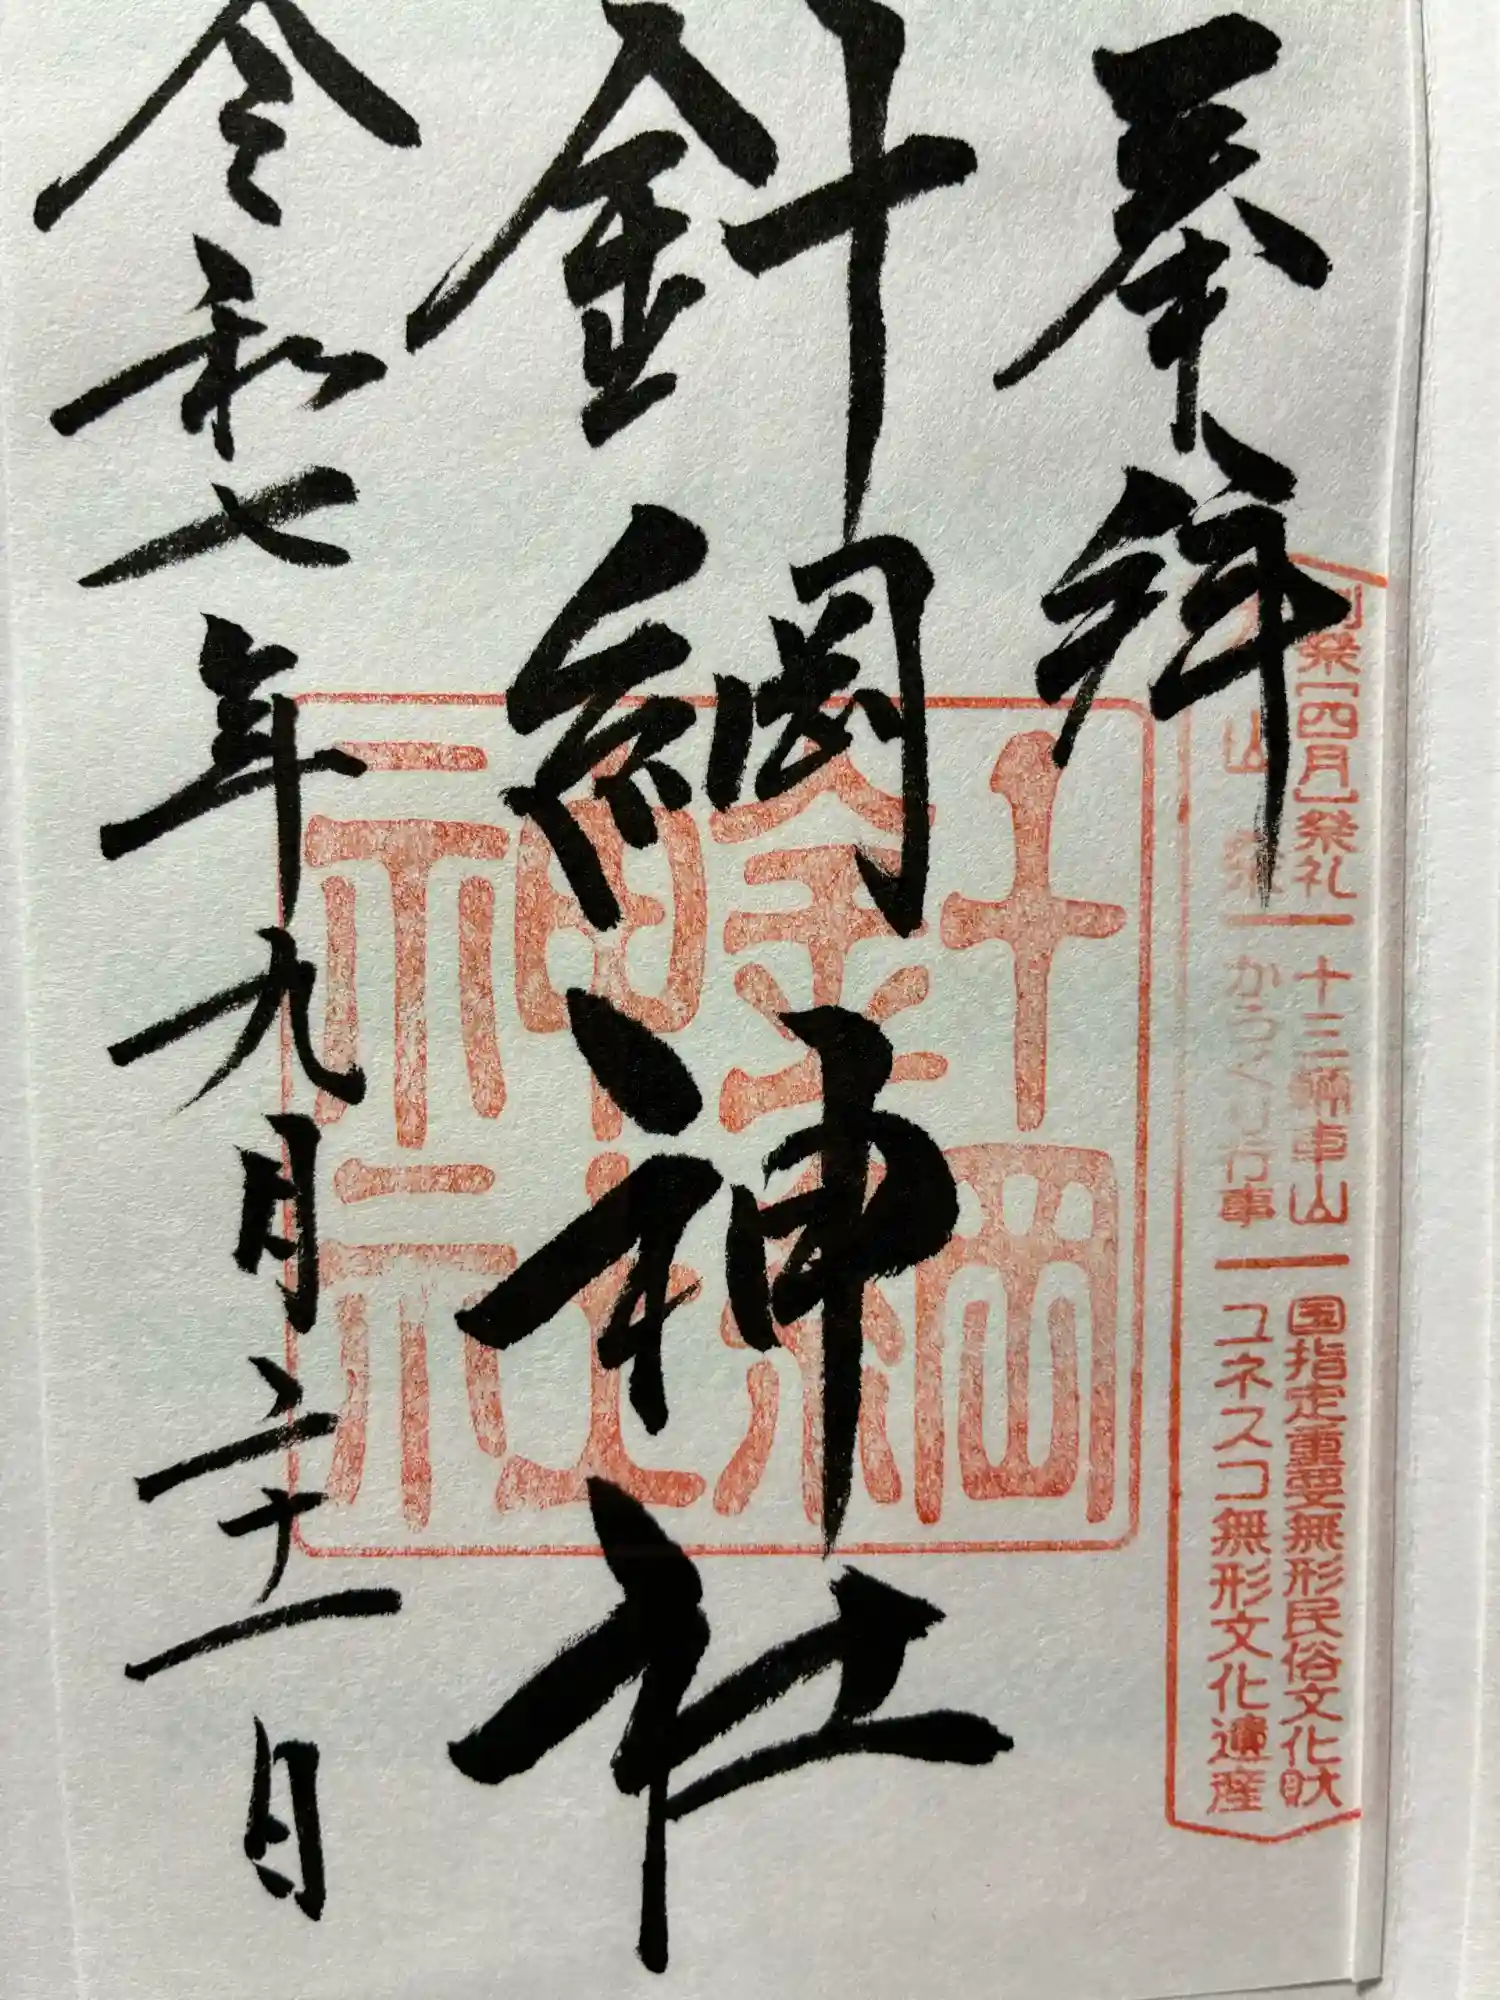 奉拝
例祭［四月］祭礼 十三輌車山 国指定重要無形民俗文化財
山祭 からくり行事 ユネスコ無形文化遺産
針綱神社
針綱神社
令和七年九月二十一日